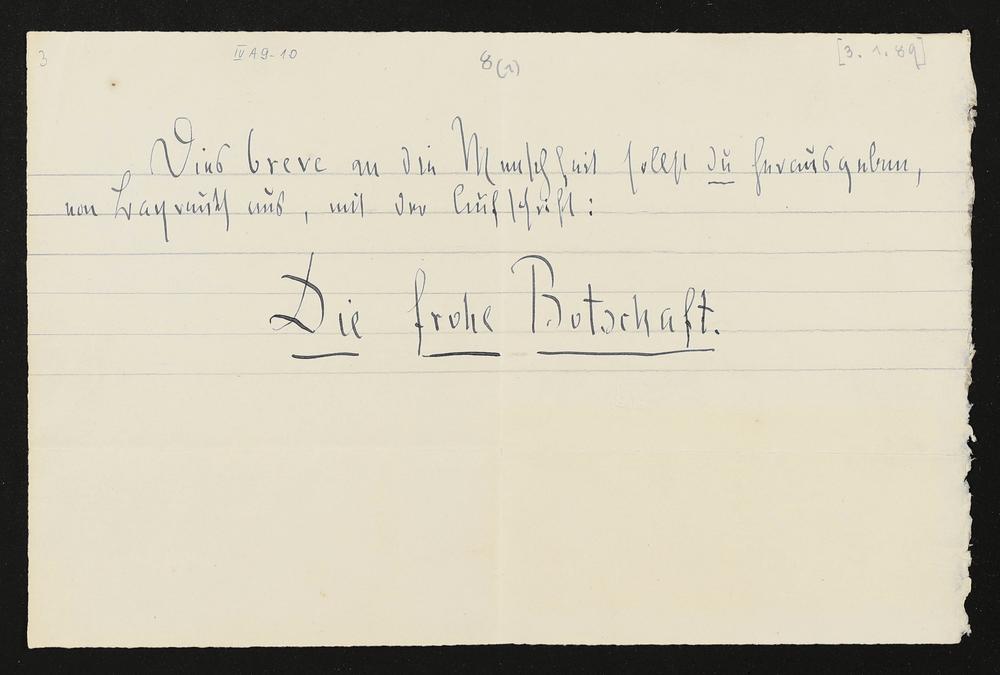 3 IV A 9-10 8(2) [3. 1. 89]
Dies breve an die Menschheit sollst du herausgeben,
von Bayreuth aus, mit der Aufschrift:
Die frohe Botschaft.